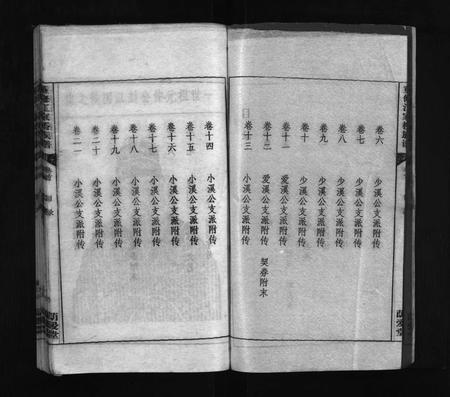 卷六 少溪公支派附传
卷七 少溪公支派附传
卷八 少溪公支派附传
卷九 少溪公支派附传
卷十 少溪公支派附传
卷十一 爱溪公支派附传
卷十二 爱溪公支派附传 契券附末
卷十三 小溪公支派附传
卷十四 小溪公支派附传
卷十五 小溪公支派附传
卷十六 小溪公支派附传
卷十七 小溪公支派附传
卷十八 小溪公支派附传
卷十九 小溪公支派附传
卷二十 小溪公支派附传
卷二一 小溪公支派附传